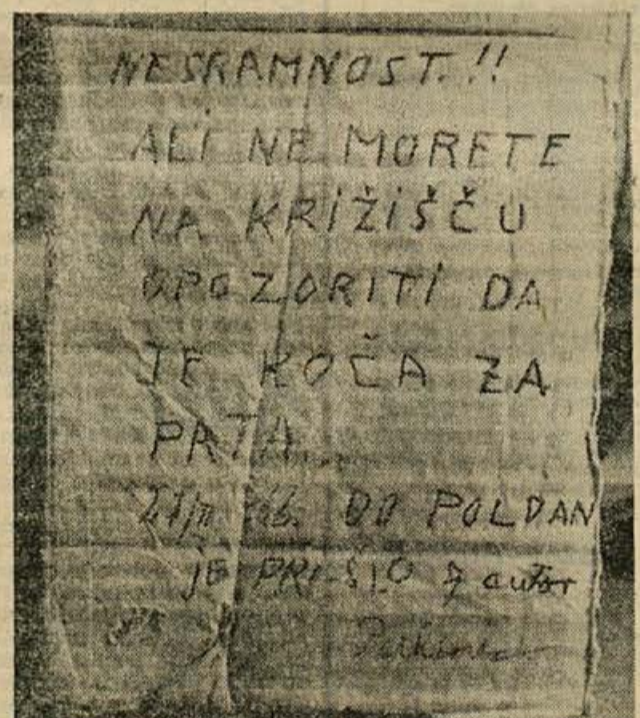 NESRAMNOST.!!
ALI NE MORETE
NA KRIŽIŠČU
OPOZORITI DA
JE KOČA ZA
PRTA.
DO POLDAN
JE PRIŠLO 7 autov